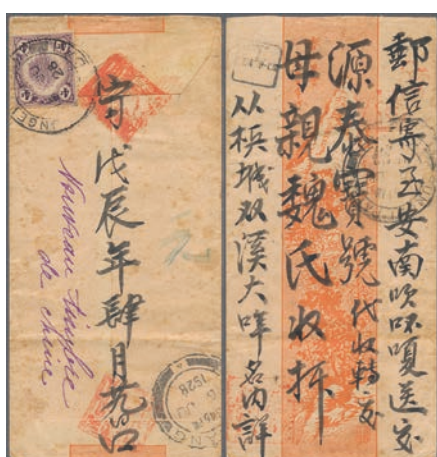 郵信寄至安南吹吥嗄送交
源泰寶號代收轉交
母親魏氏收拆
从梹城双溪大哖名內詳
戊辰年肆月九日
Nouveau Timbre
de chine
1528